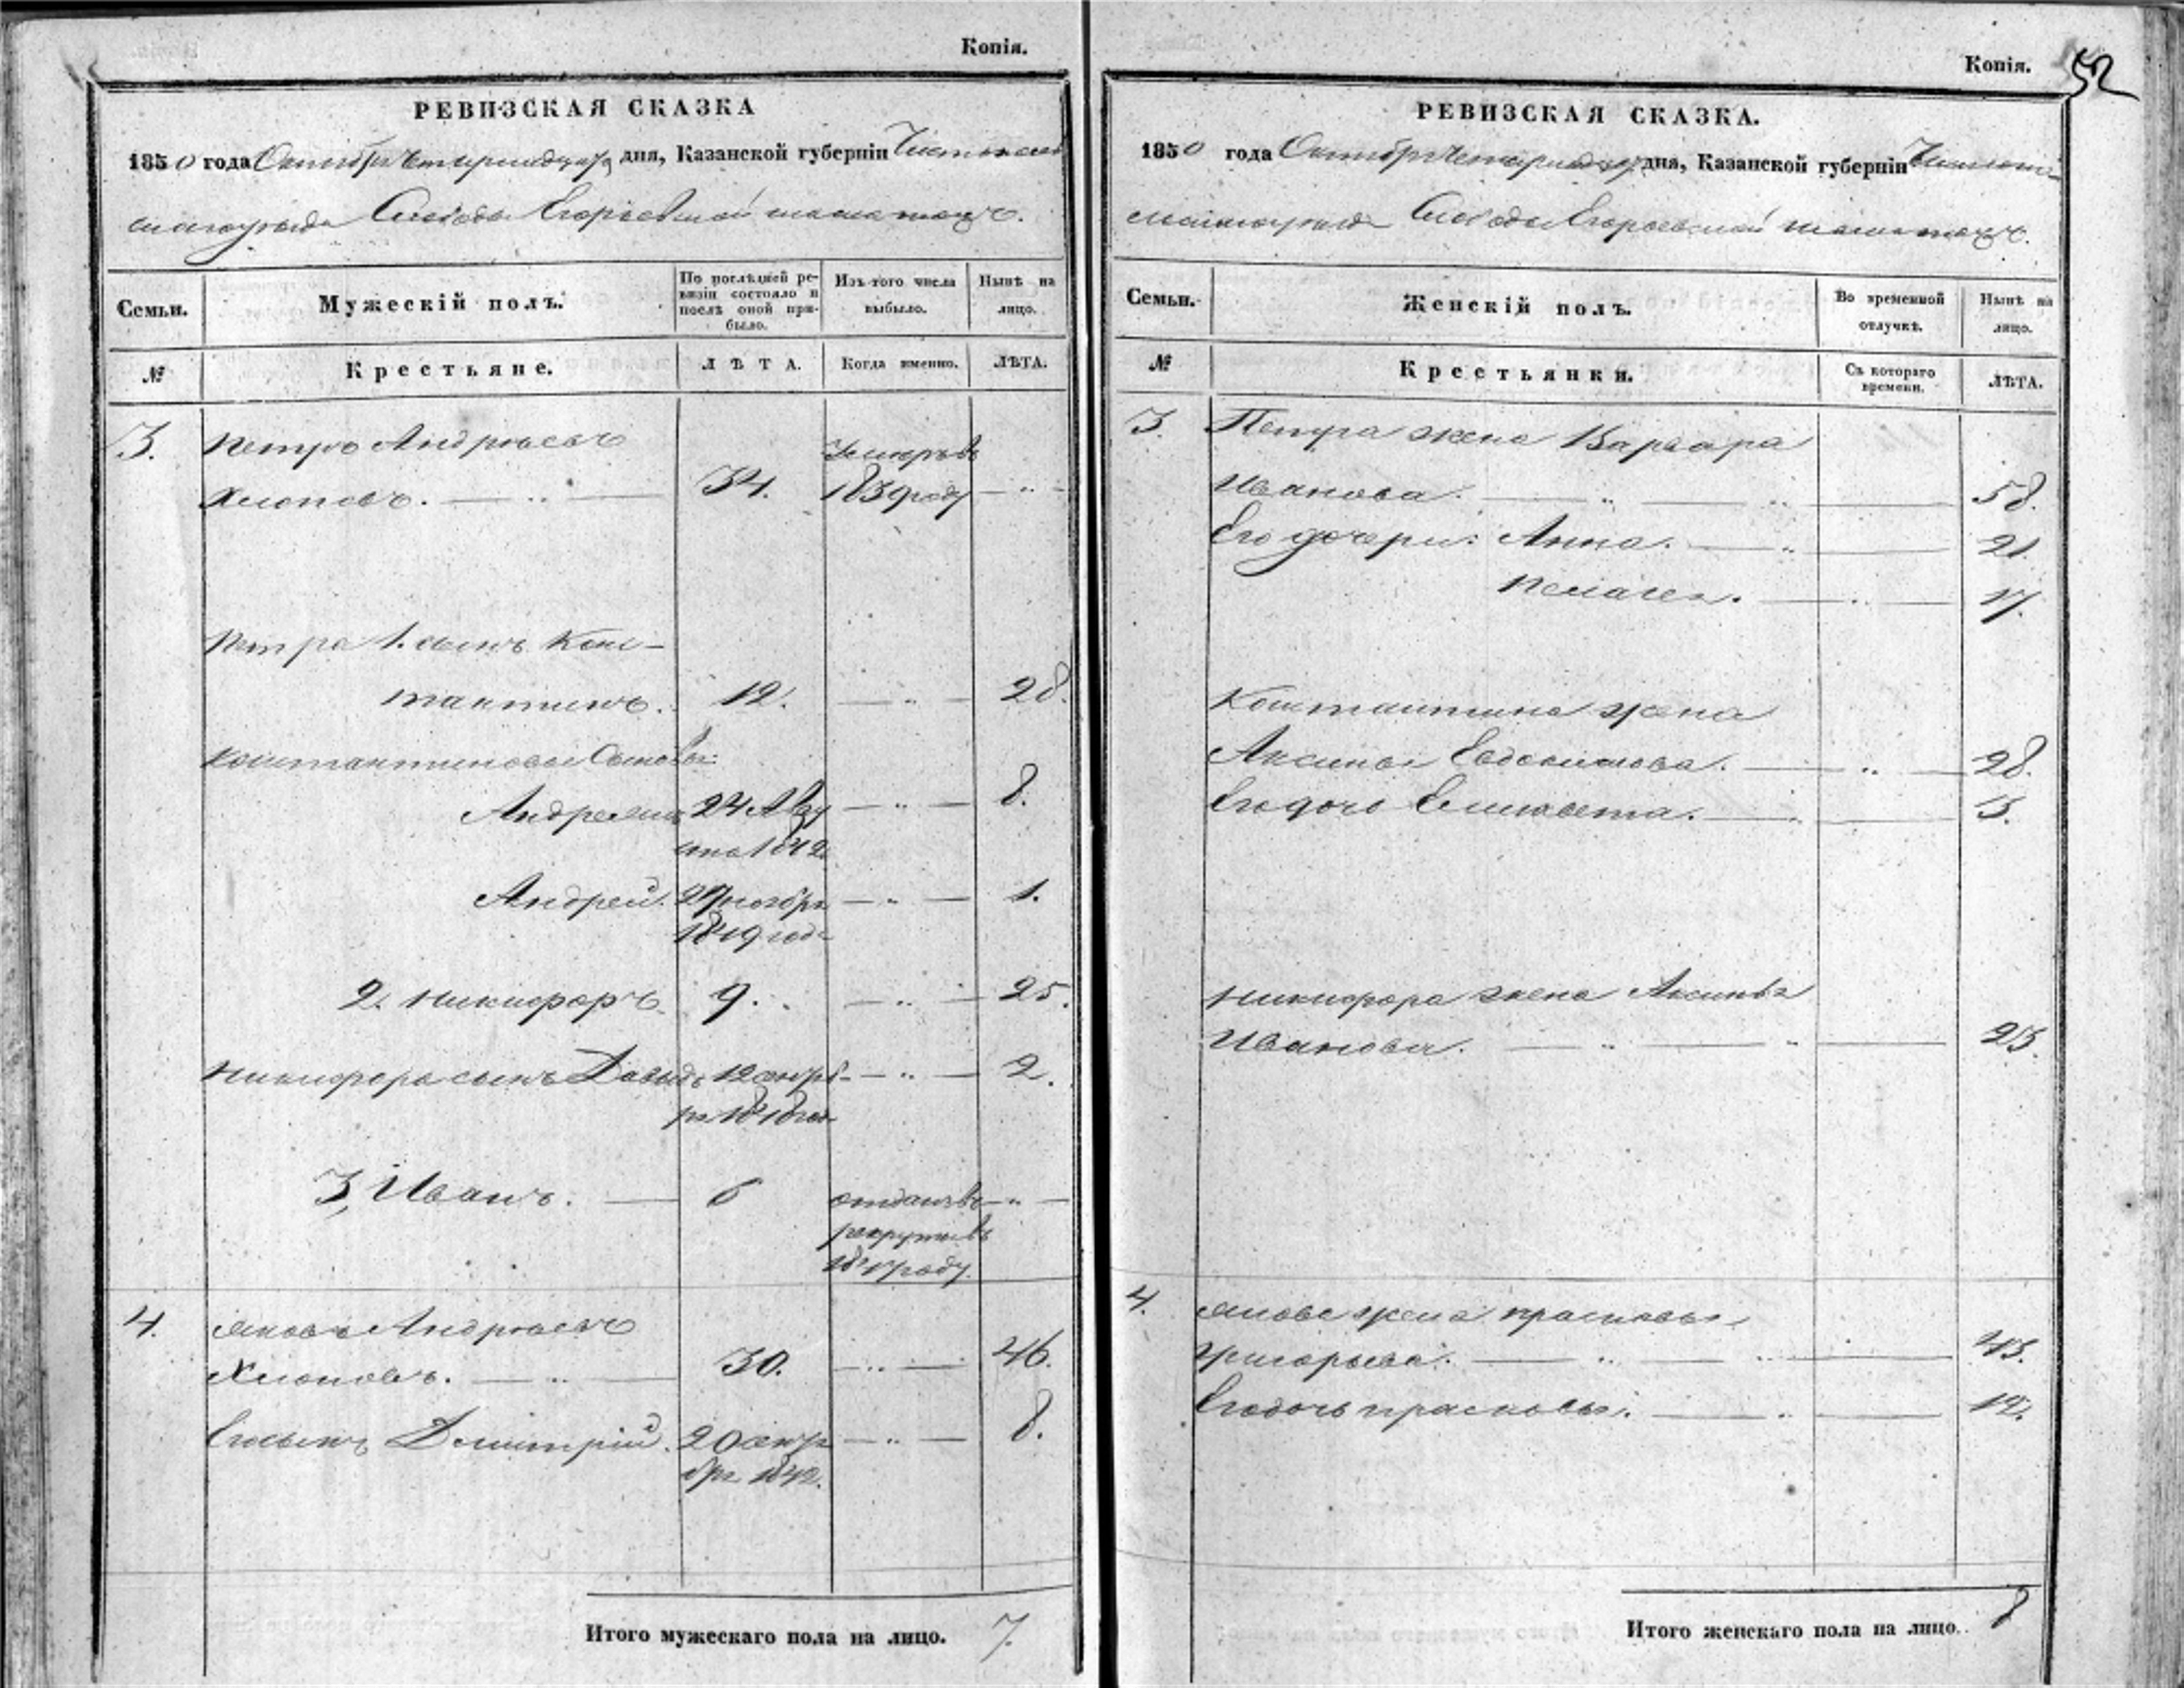 Копія.
РЕВИЗСКАЯ СКАЗКА
1850 года Октября Четырнадцатаго дня, Казанской губерніи Чистополь
скаго уезда Слободы Егорьевской
Семьи.
Мужескій полъ.
По послѣдней ре-
визіи состояло и
послѣ оной при-
было.
Изъ того числа
выбыло.
Нынѣ на
лицо.
№
Крестьяне.
ЛѢТА.
Когда именно.
ЛѢТА.
3. Петръ Андреевъ Умеръ въ
Хлоповъ. — " — 34. 1839 году — " —
Петра 1. сынъ Конс-
тантинъ. 12. — " — 28.
Константиновы Сыновья:
24 Авгу — " — 8.
ста 1842
Андрей. 29 ноября — " — 1.
1849 года
2. Никифоръ 9. — " — 25.
Никифора сынъ Давыдъ — " — 2.
3, Иванъ. — 6 отданъ въ — " —
рекруты въ
1847 году.
4. Яковъ Андреевъ
Хлоповъ. — " — 30. — " — 46.
Его сынъ Димитрій. — " — 8.
1842.
Итого мужескаго пола на лицо. 7.
Копія.
52
РЕВИЗСКАЯ СКАЗКА.
1850 года Октября Четырнадцатаго дня, Казанской губерніи Чистополь
скаго уезда Слободы Егорьевской
Семьи.
Женскій полъ.
Во временной
отлучкѣ.
Нынѣ на
лицо.
№
Крестьянки.
Съ котораго
времени.
ЛѢТА.
3. Петра жена Варвара
Иванова. — " — " — 58.
Его дочери: Анна. — " — 21.
Пелагея. — " — 17.
Константина жена
Аксинья Евдокимова. — " — 28.
Его дочь Елизавета. — " — 5.
Никифора жена Аксинья
Иванова. — " — " — 25.
4. Якова жена Прасковья
Григорьева. — " — " — 45.
Его дочь Прасковья. — " — 12.
Итого женскаго пола на лицо. 8